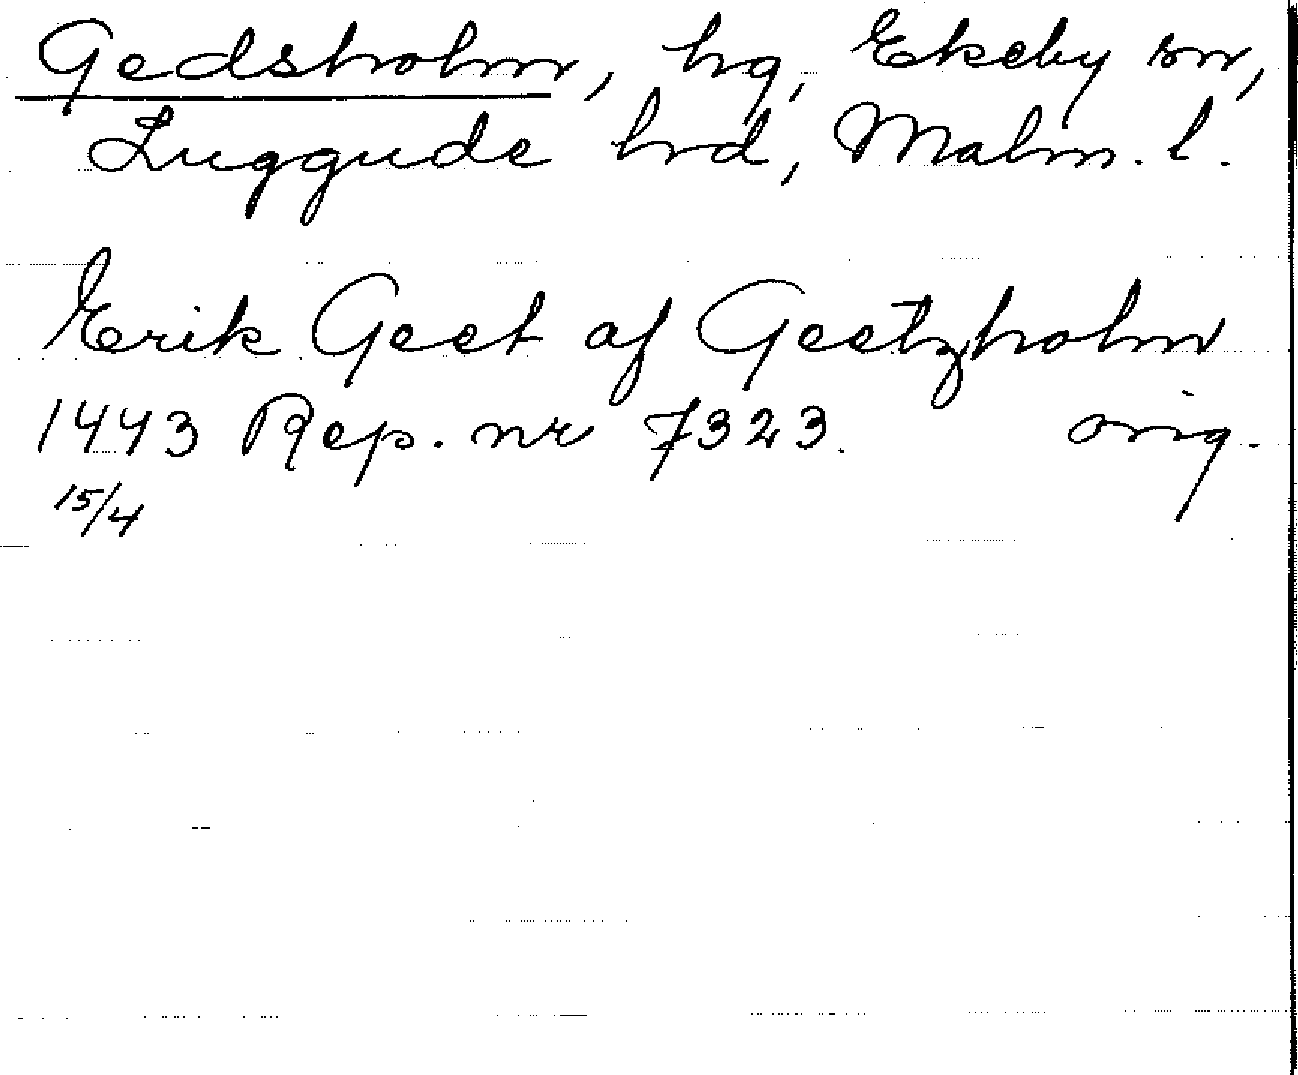 Gedsholm, hg, Ekeby sn,
Luggude hrd, Malm. l.
Erik Geet af Geetzholm
1443 Rep. nr 7323. orig.
15/4